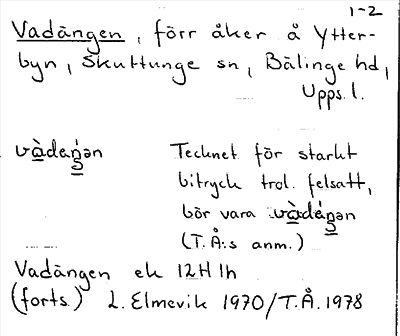 1-2
Vadängen, förr åker å Ytter-
byn, Skuttunge sn, Bälinge hd,
Upps. l.
Tecknet för starkt
bitryck trol. felsatt,
bör vara
(T.Å:s anm.)
Vadängen ek 12H 1h
(forts.) L. Elmevik 1970/T.Å. 1978